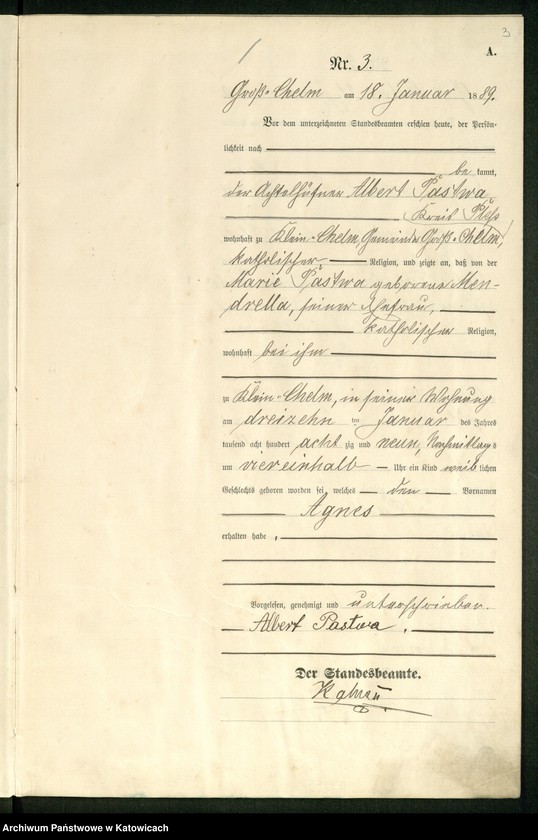 3
A.
Nr. 3.
Groß-Chelm am 18. Januar 1889.
Vor dem unterzeichneten Standesbeamten erschien heute, der Persön-
lichkeit nach
bekannt,
der Achtelhüfner Albert Pastwa
Kreis Pleß
wohnhaft zu Klein-Chelm, Gemeinde Groß-Chelm,
katholischer Religion, und zeigte an, daß von der
Marie Pastwa geborene Men-
drella, seiner Ehefrau,
katholischer Religion,
wohnhaft bei ihm
zu Klein-Chelm, in seiner Wohnung
am dreizehn ten Januar des Jahres
tausend acht hundert acht zig und neun, Nachmittags
um viereinhalb Uhr ein Kind weiblichen
Geschlechts geboren worden sei, welches den Vornamen
Agnes
erhalten habe.
Vorgelesen, genehmigt und unterschrieben.
Albert Pastwa.
Der Standesbeamte.
Archiwum Państwowe w Katowicach